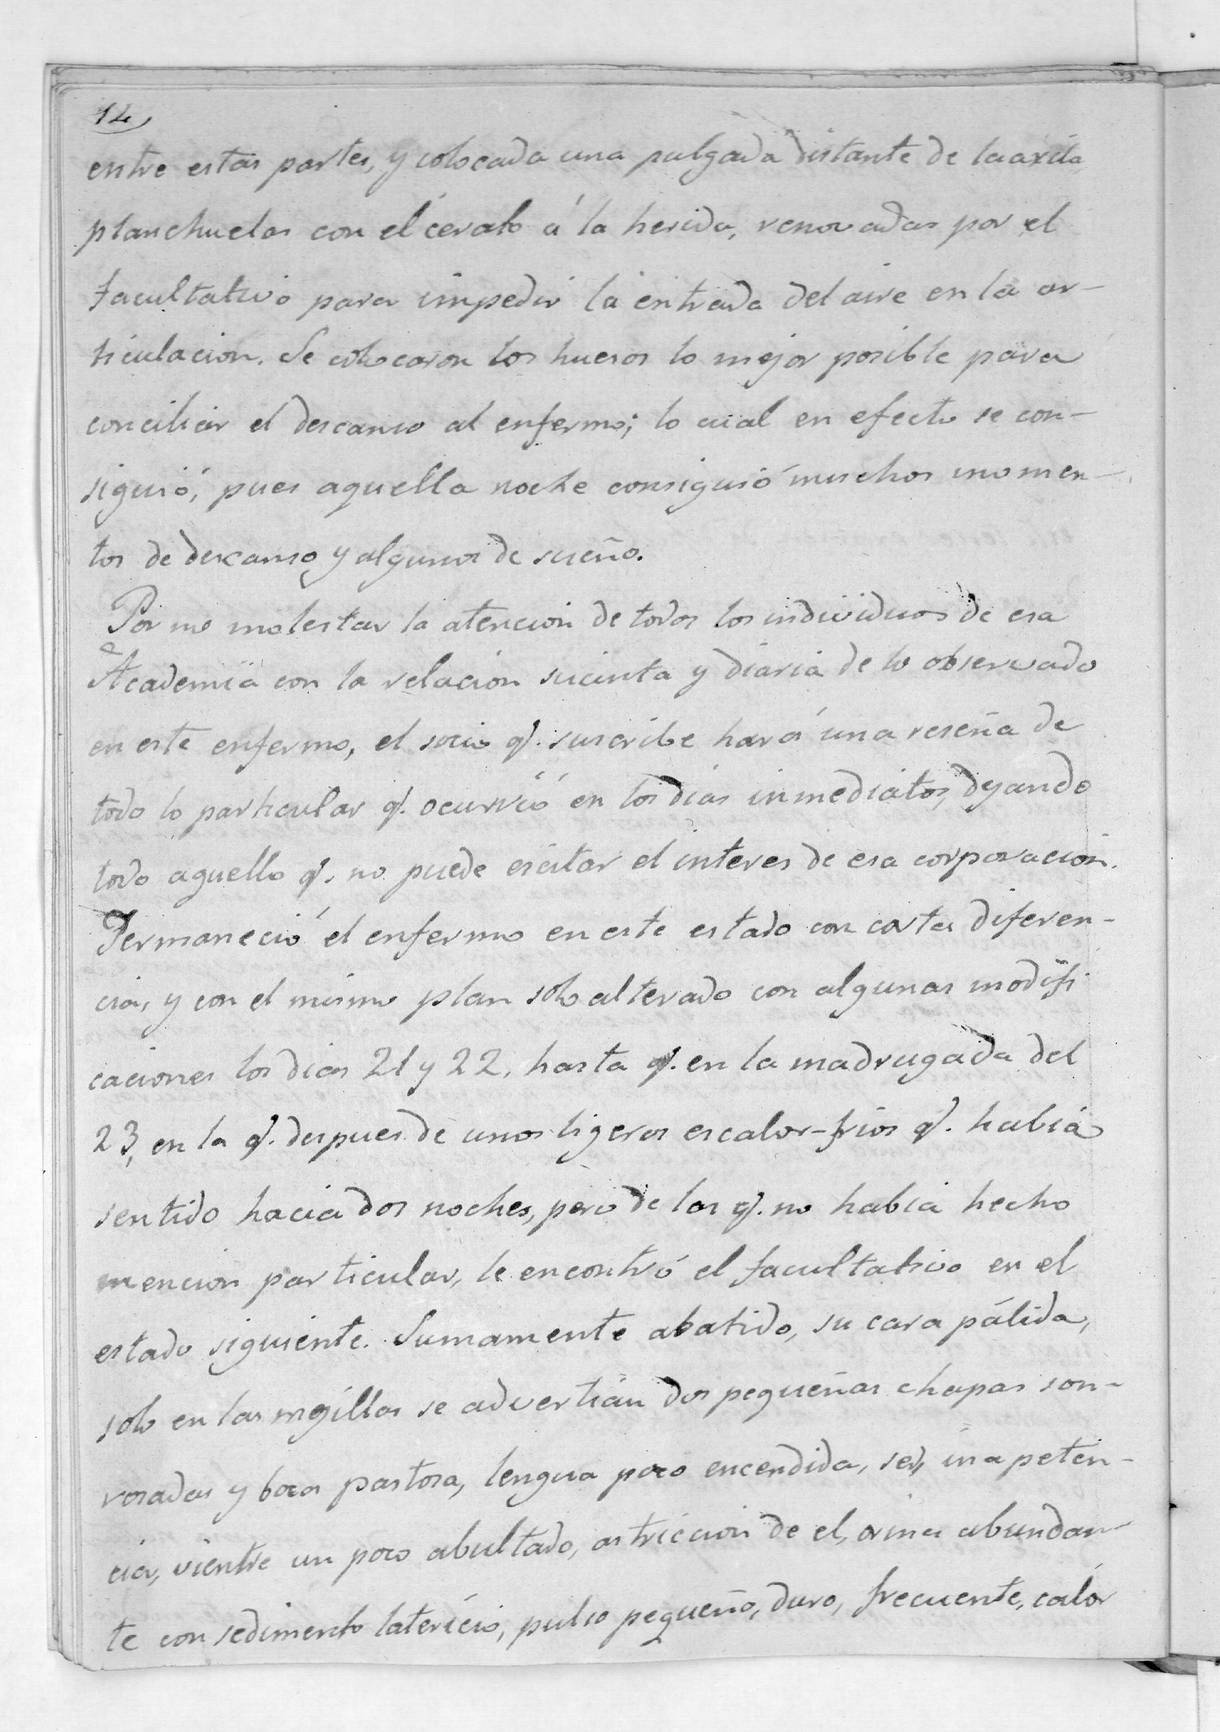 14
entre estas partes, y colocada una pulgada distante de la axila
planchuelas con el cerato á la herida, renovadas por el
facultativo para impedir la entrada del aire en la ar-
ticulacion. Se colocaron los huesos lo mejor posible para
conciliar el descanso al enfermo; lo cual en efecto se con-
siguió, pues aquella noche consiguió muchos momen-
tos de descanso y algunos de sueño.
Por no molestar la atencion de todos los individuos de esa
Academia con la relacion sucinta y diaria de lo observado
en este enfermo, el socio q.e suscribe hará una reseña de
todo lo particular q.e ocurrió en los dias inmediatos, dejando
todo aquello q.e no puede escitar el interes de esa corporacion.
Permaneció el enfermo en este estado con corta diferen-
cia, y con el mismo plan solo alterado con algunas modifi
caciones los dias 21 y 22, hasta q.e en la madrugada del
23, en la q.e despues de unos ligeros escalos-frios q.e habia
sentido hacia dos noches, pero de los q.e no habia hecho
mencion particular, le encontró el facultativo en el
estado siguiente. Sumamente abatido, su cara pálida,
solo en las mejillas se advertian dos pequeñas chapas son-
rosadas y boca pastosa, lengua poco encendida, sed, inapeten-
cia, vientre un poco abultado, astriccion de el, orina abundan-
te con sedimento latericio, pulso pequeño, duro, frecuente, calor